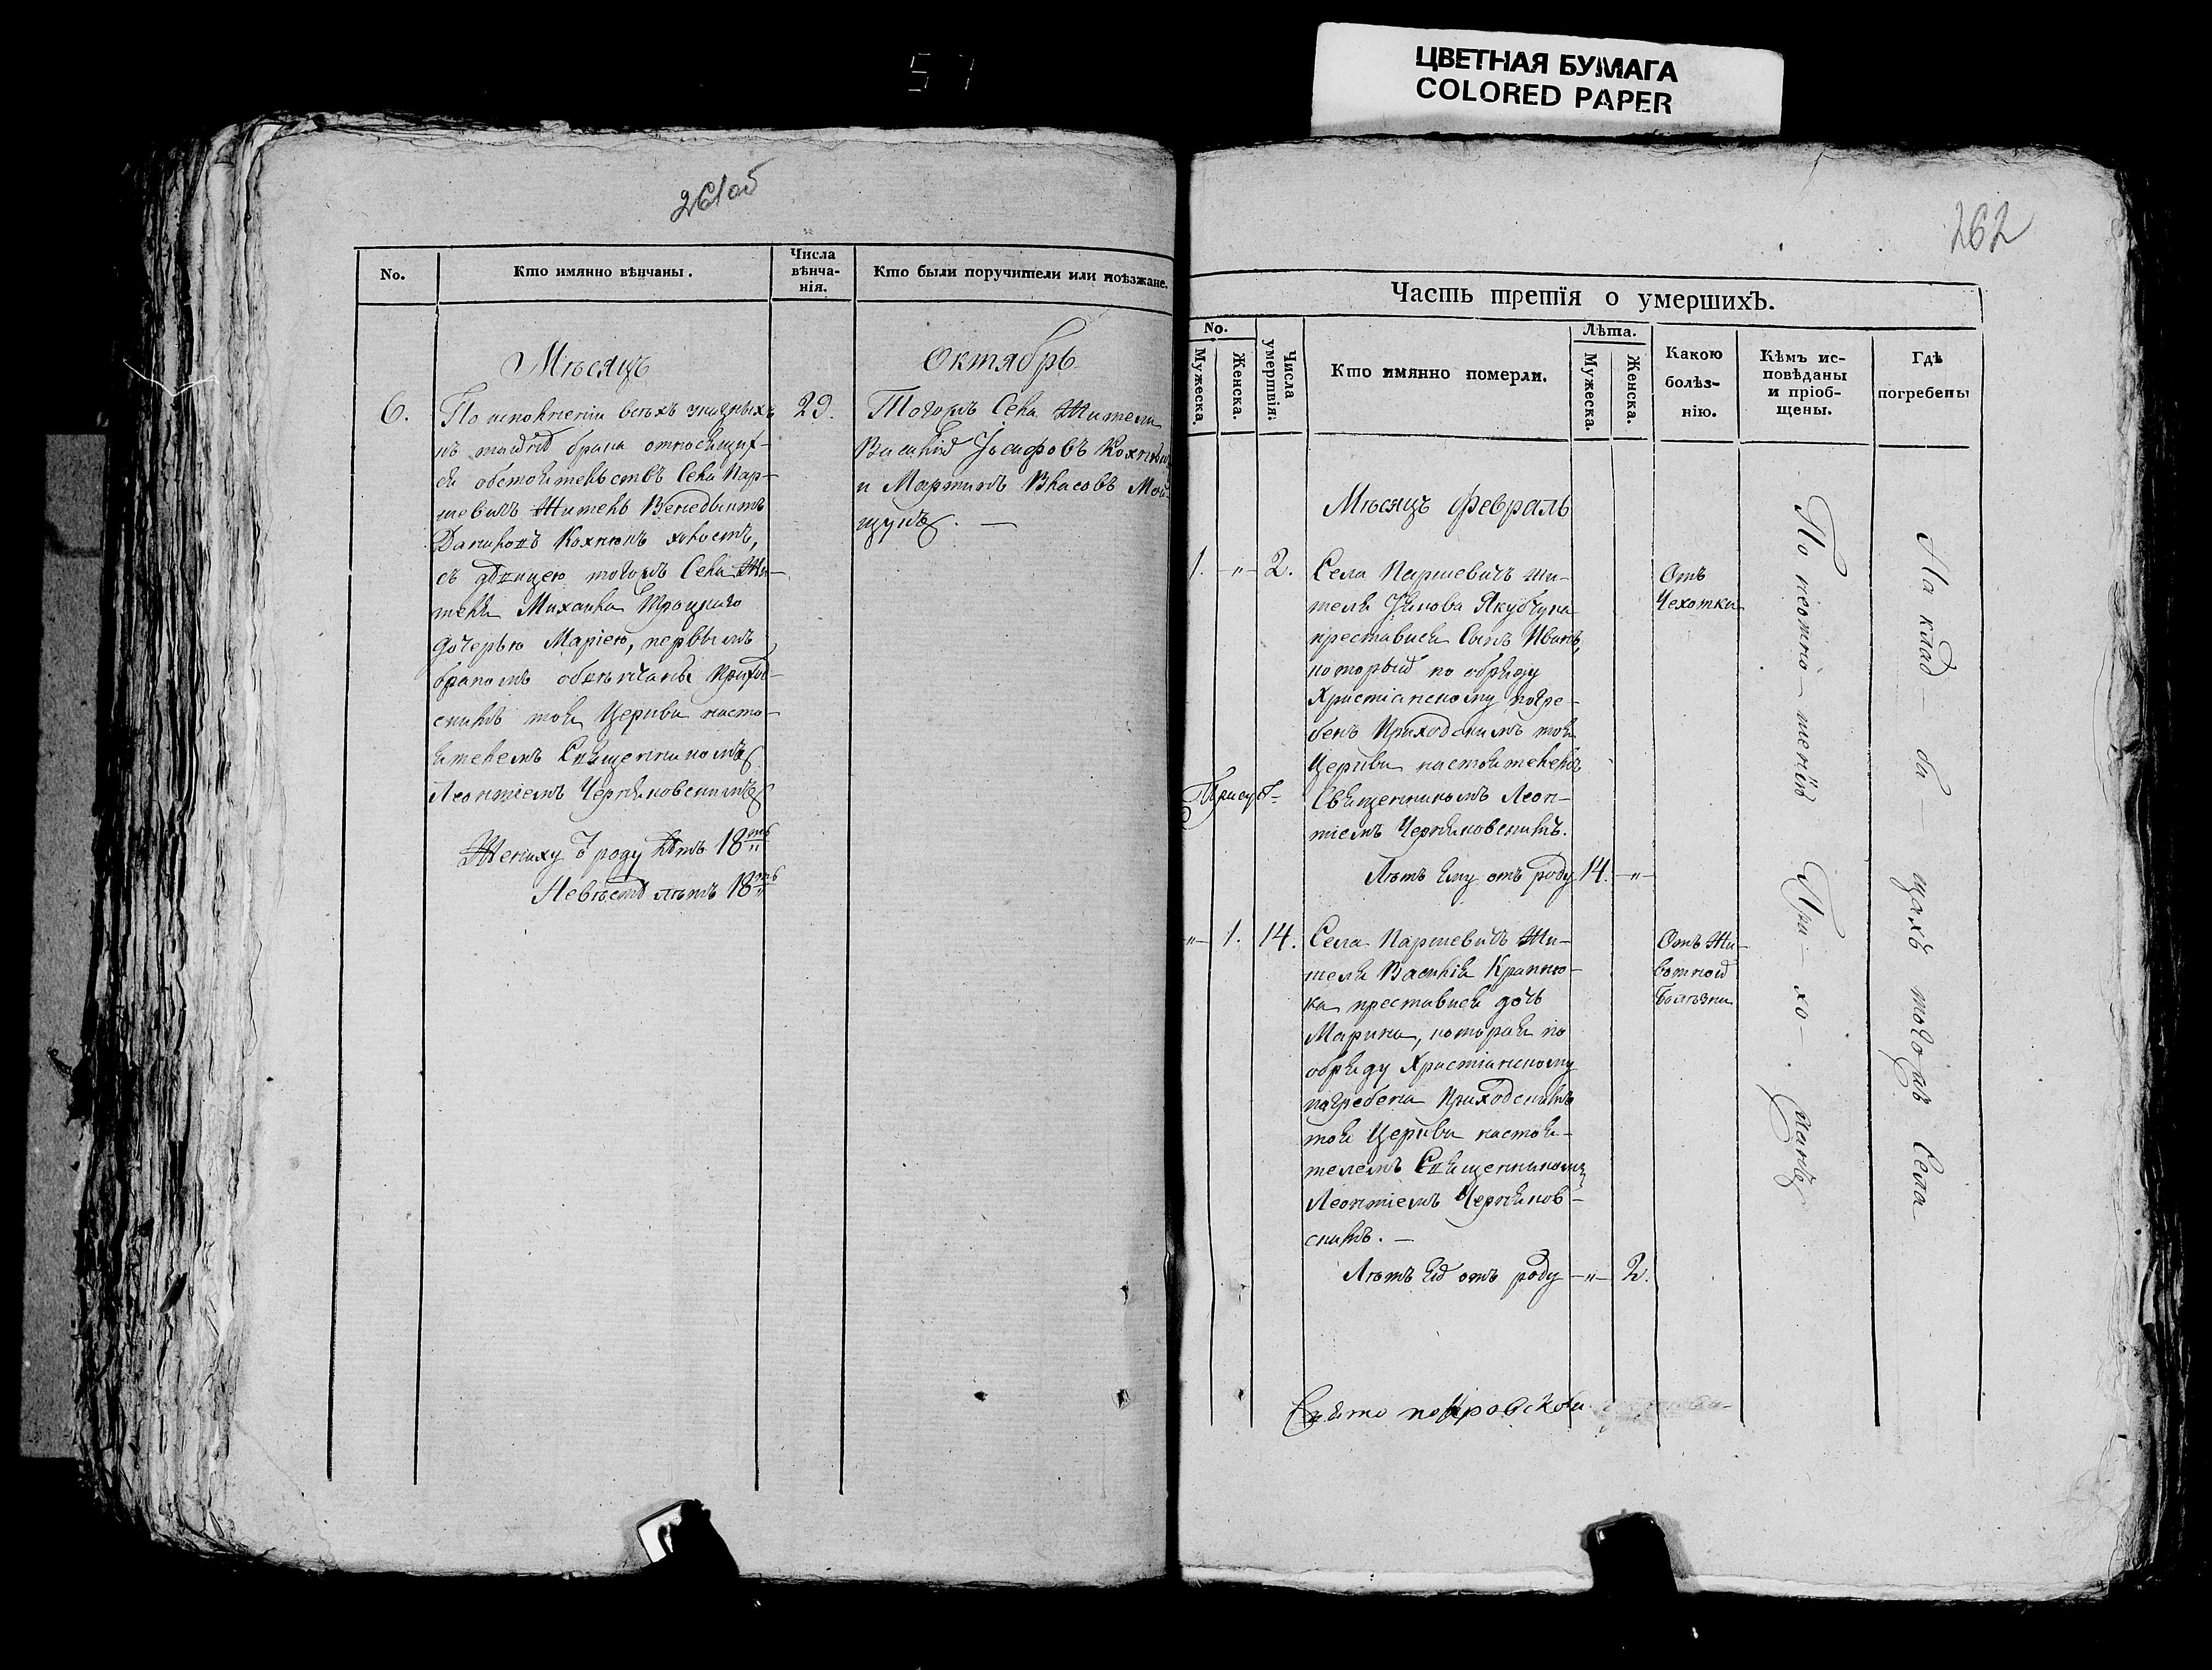 57
ЦВЕТНАЯ БУМАГА
COLORED PAPER
261об
No.
Кто имянно вѣнчаны.
Числа вѣнча-нія.
Кто были поручители или поѣзжане.
Мѣсяцъ
Октябрь
6.
По исполненіи всѣхъ
29.
къ брака относящих-
ся обстоятельствъ Села Пар-
шевичъ Житель Венедыктъ
Даниловъ Кохнюкъ холостъ,
съ дѣвицею тогожъ Села Жи-
теля Михаила Троцкаго
дочерью Маріею, первымъ
бракомъ обвѣнчаны Приход-
скимъ тоя Церкви насто-
ятелемъ Священникомъ
Леонтіемъ Черняковскимъ
Жениху роду лѣтъ 18ть
Невѣстѣ лѣтъ 18ть
Тогожъ Села Жители
Василій Іосифовъ
и Мартинъ Власовъ Мой-
щукъ. —
262
Часть третія о умершихъ.
No.
Мужеска.
Женска.
Числа умертвія.
Кто имянно померли.
Лѣта.
Мужеска.
Женска.
Какою болѣз-нію.
Кѣмъ ис-повѣданы и пріоб-щены.
Гдѣ погребены
Мѣсяцъ Февраль
1. — „ — 2.
Села Паршевичъ жи-
теля Якова Якубчука
преставися Сынъ Иванъ,
который по обряду
Христіанскому погре-
бенъ Приходскимъ тоя
Церкви настоятелемъ
Священникомъ Леон-
тіемъ Черняковскимъ.
Лѣтъ Ему отъ роду 14. — „ —
Отъ
Чехотки
„ — 1. 14.
Села Паршевичъ Жи-
теля Василія Крапню-
ка преставися дочь
Марина, которая по
обряду Христіанскому
погребена Приходскимъ
тоя Церкви настоя-
телемъ Священникомъ
Леонтіемъ Черняков-
скимъ. —
Лѣтъ Ей отъ роду — „ — 2.
Отъ Жи-
вотной
Болѣзни
При — хо —
На клад — би — щахъ тогожъ Села
Свято покровской